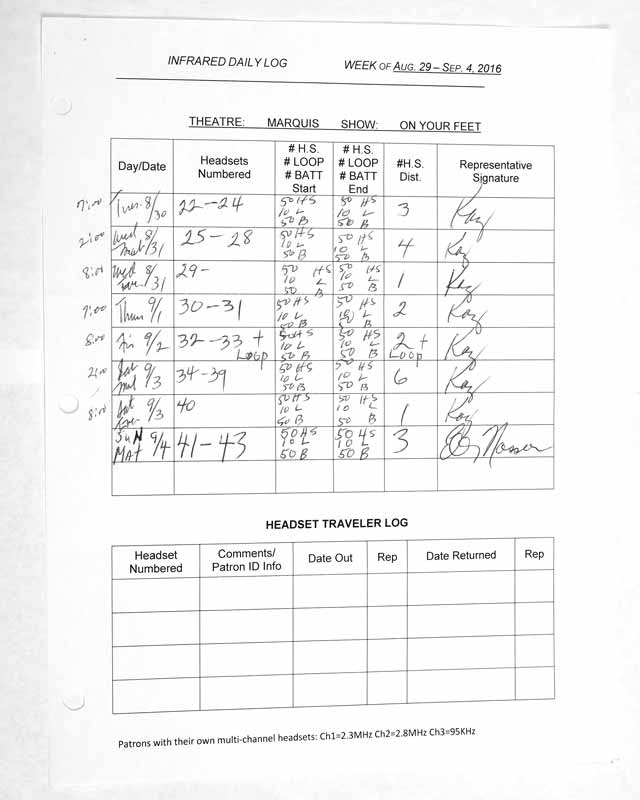 INFRARED DAILY LOG WEEK OF AUG. 29 – SEP. 4, 2016
THEATRE: MARQUIS SHOW: ON YOUR FEET
Day/Date Headsets Numbered # H.S. # LOOP # BATT Start # H.S. # LOOP # BATT End #H.S. Dist. Representative Signature
7:00 Tues. 8/30 22-24 50 HS 10 L 50 B 50 HS 10 L 50 B 3 Kay
2:00 Wed mat 8/31 25-28 50 HS 10 L 50 B 50 HS 10 L 50 B 4 Kay
8:00 Wed eve 8/31 29- 50 HS 10 L 50 B 50 HS 10 L 50 B 1 Kay
7:00 Thurs 9/1 30-31 50 HS 10 L 50 B 50 HS 10 L 50 B 2 Kay
8:00 Fri 9/2 32-33 + Loop 50 HS 10 L 50 B 50 HS 10 L 50 B 2 + Loop Kay
2:00 Sat mat 9/3 34-39 50 HS 10 L 50 B 50 HS 10 L 50 B 6 Kay
8:00 Sat Eve 9/3 40 50 HS 10 L 50 B 50 HS 10 L 50 B 1 Kay
SUN MAT 9/4 41-43 50 HS 10 L 50 B 50 HS 10 L 50 B 3
HEADSET TRAVELER LOG
Headset Numbered Comments/ Patron ID Info Date Out Rep Date Returned Rep
Patrons with their own multi-channel headsets: Ch1=2.3MHz Ch2=2.8MHz Ch3=95KHz